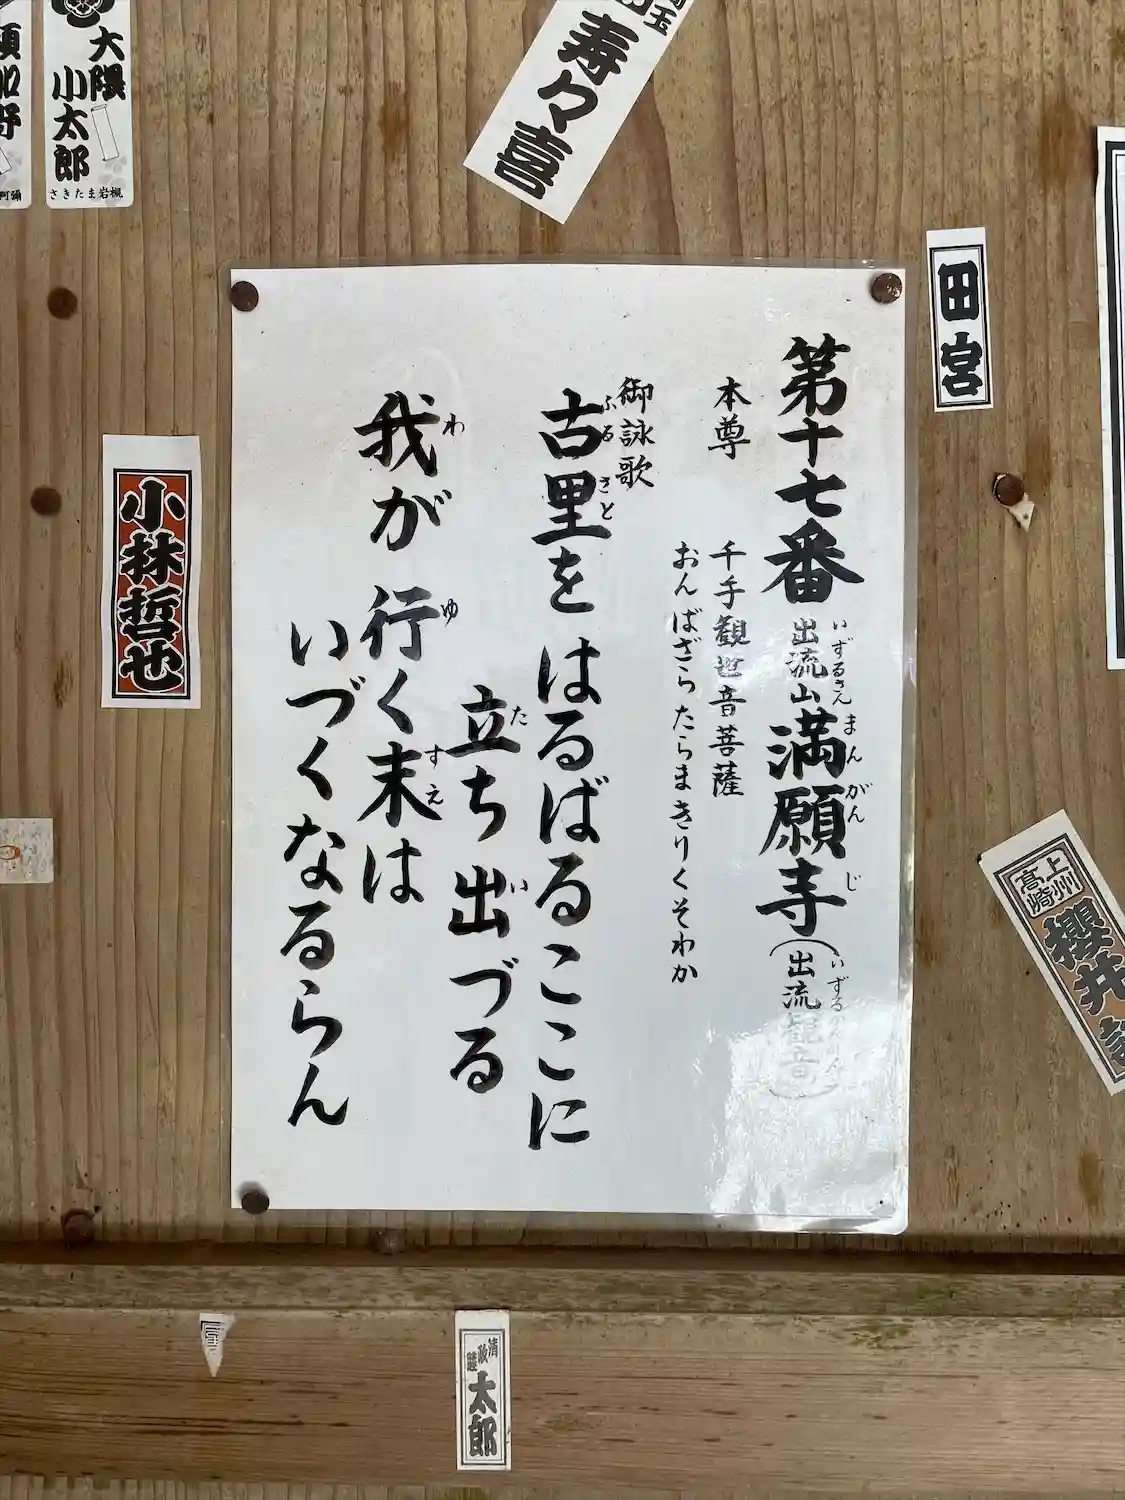 第十七番 出流山 満願寺(出流観音)
いずるさん まんがんじ
本尊 千手観世音菩薩
おんばざらたらまきりくそわか
御詠歌
古里をはるばるここに
ふるさと
立ち出づる
た い
我が行く末は
わ ゆ すえ
いづくなるらん
大隈
小太郎
さきたま岩槻
寿々喜
田宮
小林哲也
上州
高崎
櫻井
清政睦
太郎